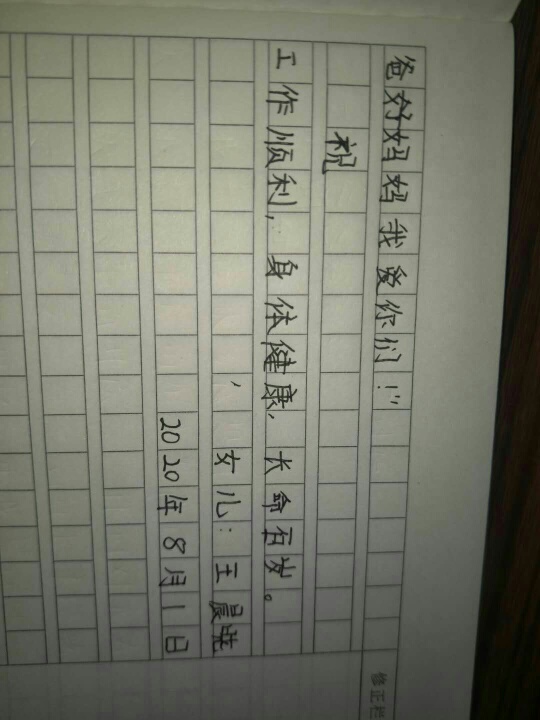 爸好妈妈我爱你们！”
祝
工作顺利，身体健康，长命百岁。
女儿：王晨
2020年8月1日
修正栏